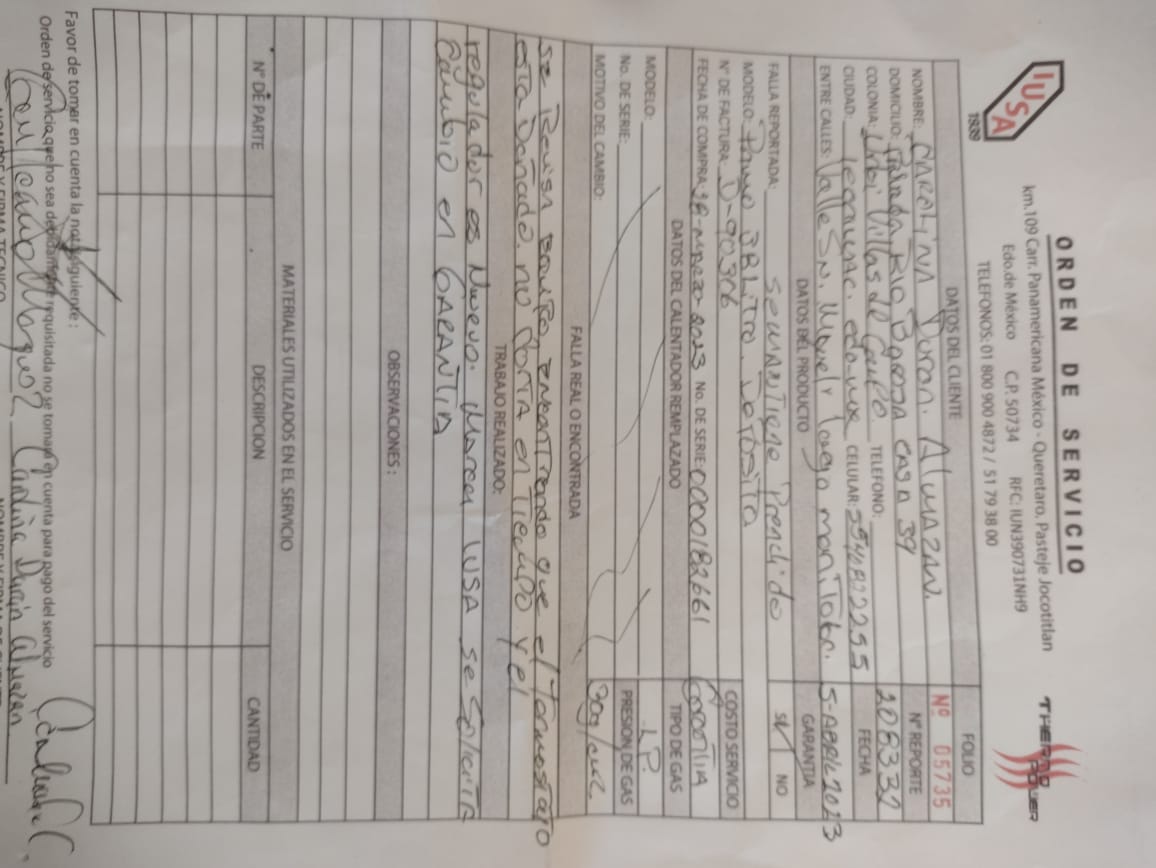 IUSA
1939
ORDEN DE SERVICIO
km.109 Carr. Panamericana México - Queretaro. Pasteje Jocotitlan
Edo.de México C.P. 50734 RFC: IUN390731NH9
TELEFONOS: 01 800 900 4872 / 51 79 38 00
THERMO POWER
DATOS DEL CLIENTE
FOLIO
Nº 05735
NOMBRE: CAROLINA Duran. AlMAZAN.
Nº REPORTE
208332
DOMICILIO: Rio casa 39
COLONIA: Urbi Villas del TELEFONO:
FECHA
5-ABRIL 2023
CIUDAD: Tecamac. edo-mex CELULAR: 5540822255
ENTRE CALLES: Calle SN. Miguel y lago
DATOS DEL PRODUCTO
GARANTIA
SI NO
FALLA REPORTADA: se mantiene Prendido
MODELO: 38 Litro Deposito
COSTO SERVICIO
Garantia
N° DE FACTURA: D-90306
FECHA DE COMPRA: -2023 No. DE SERIE: 000182661
TIPO DE GAS
L.P.
DATOS DEL CALENTADOR REMPLAZADO
MODELO:
PRESION DE GAS
No. DE SERIE:
MOTIVO DEL CAMBIO:
FALLA REAL O ENCONTRADA
se Revisa Boiler encontrando que el Termostato
esta Dañado no Corta en Tiempo y el
TRABAJO REALIZADO:
regulador es Nuevo. Marca IUSA se Solicita
Cambio en GARANTIA
OBSERVACIONES:
MATERIALES UTILIZADOS EN EL SERVICIO
N° DE PARTE DESCRIPCION CANTIDAD
Favor de tomar en cuenta la nota siguiente:
Orden de servicia que no sea debidamente requisitada no se tomara en cuenta para pago del servicio
Carolina Durán Almazán
NOMBRE Y FIRMA TECNICO